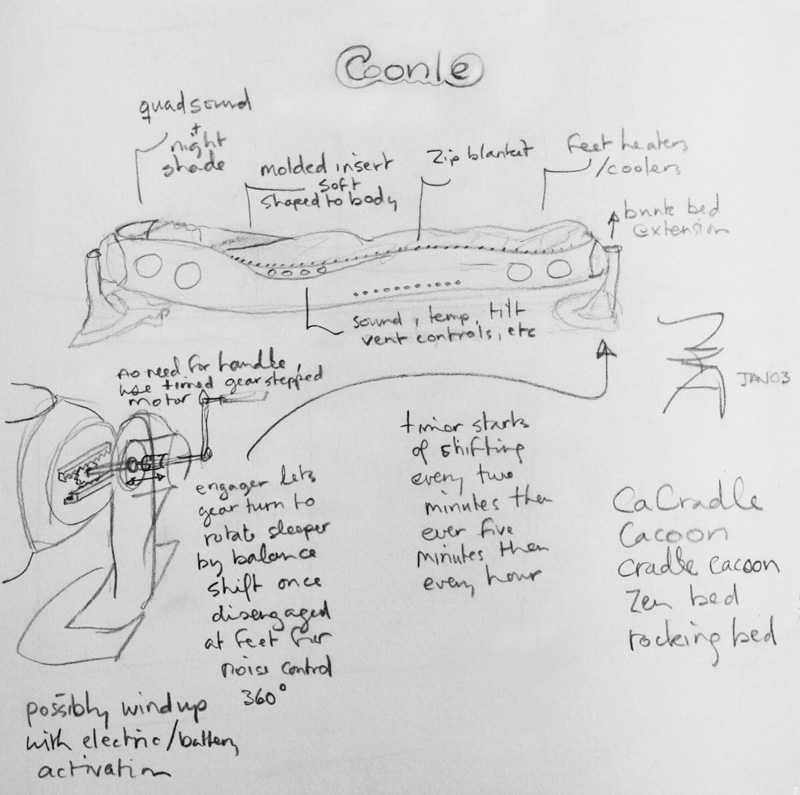 Coonle
quadsound
+
night
shade
molded insert
soft
shaped to body
Zip blanket
Feet heaters
/coolers
bunk bed
extension
sound, temp, tilt
vent controls, etc
no need for handle,
use timed gear stepped
motor
JAN 03
engager lets
gear turn to
rotate sleeper
by balance
shift once
disengaged
at feet for
noise control
360°
timor starts
of shifting
every two
minutes then
ever five
minutes then
every hour
CaCradle
Cacoon
Cradle cacoon
Zen bed
rocking bed
possibly windup
with electric/battery
activation